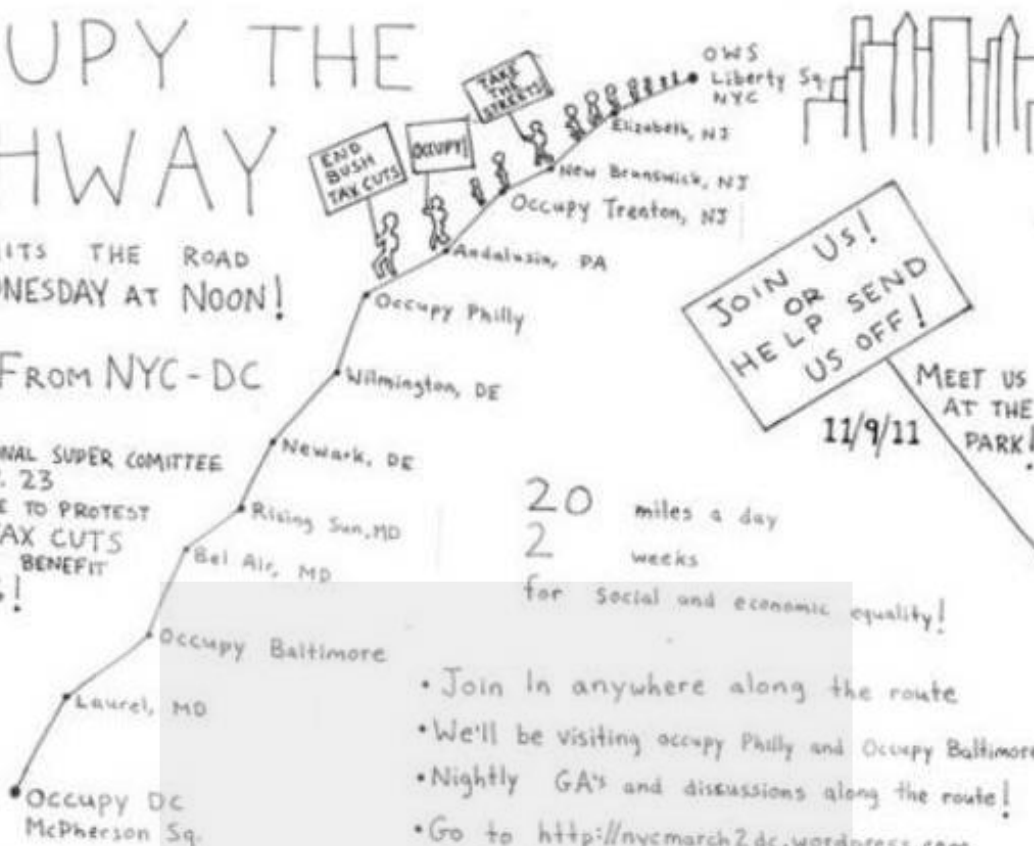 UPY THE
HWAY
ITS THE ROAD
NESDAY AT NOON!
FROM NYC-DC
NAL SUPER COMITTEE
23
TO PROTEST
AX CUTS
BENEFIT
END
BUSH
TAX CUTS
OCCUPY!
TAKE
THE
STREETS!
OWS
Liberty Sq.
NYC
Elizabeth, NJ
New Brunswick, NJ
Occupy Trenton, NJ
Andalusia, PA
Occupy Philly
Wilmington, DE
Newark, DE
Rising Sun, MD
Bel Air, MD
Occupy Baltimore
Laurel, MD
Occupy DC
McPherson Sq.
JOIN US!
OR
HELP SEND
US OFF!
MEET US
AT THE
PARK!
11/9/11
20 miles a day
2 weeks
for social and economic equality!
• Join in anywhere along the route
• We'll be visiting occupy Philly and Occupy Baltimore
• Nightly GA's and discussions along the route!
• Go to http://nycmarch2dc.wordpress.com